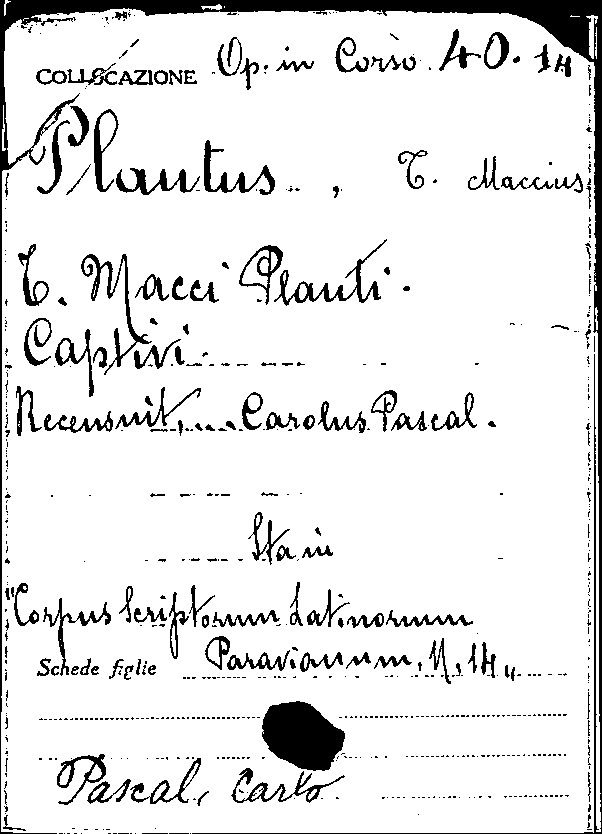 COLLOCAZIONE Op. in Corso 40.14
Plautus , T. Maccius
T. Macci Plauti.
Captivi.
Recensuit, ... Carolus Pascal.
Sta in
"Corpus Scriptorum Latinorum
Schede figlie Paravianum, N. 14"
Pascal, Carlo